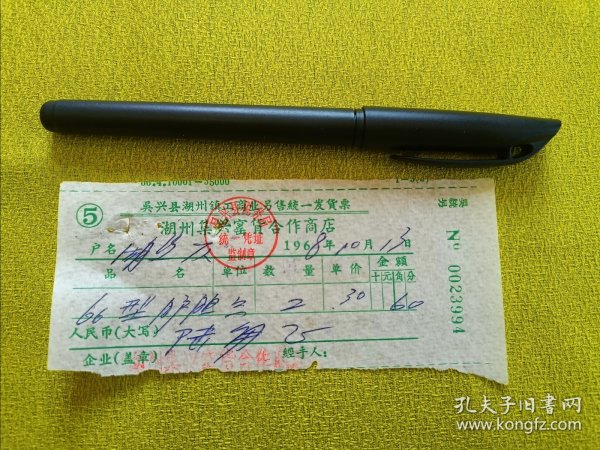 66.4.10001-35000
吳兴县湖州镇工商业另售統一发貨票
⑤
湖州集兴富官合作商店
统一凭证
监制章
户名 1968年10月13日
品名 单位 数量 单价 金額
十元角分
66型 2 .30 60
人民币(大写) 陆角
企业(盖章) 經手人:
吳財号
№ 0023994
孔夫子旧书网
www.kongfz.com